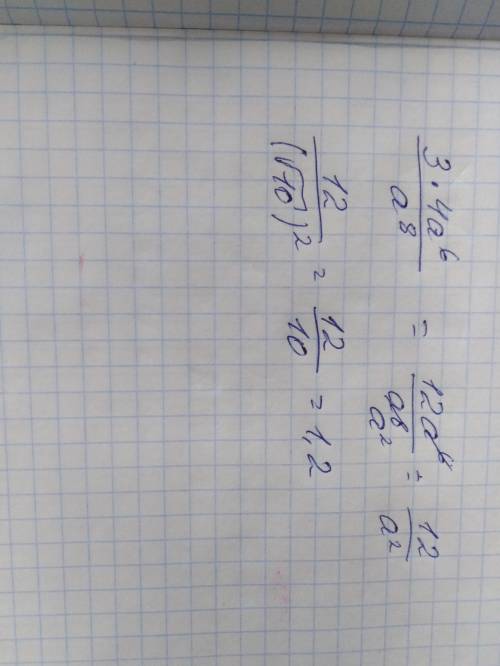 3·4a⁶/a⁸ = 12a⁶/a⁸ a² = 12/a²
12/(√10)² = 12/10 = 1,2